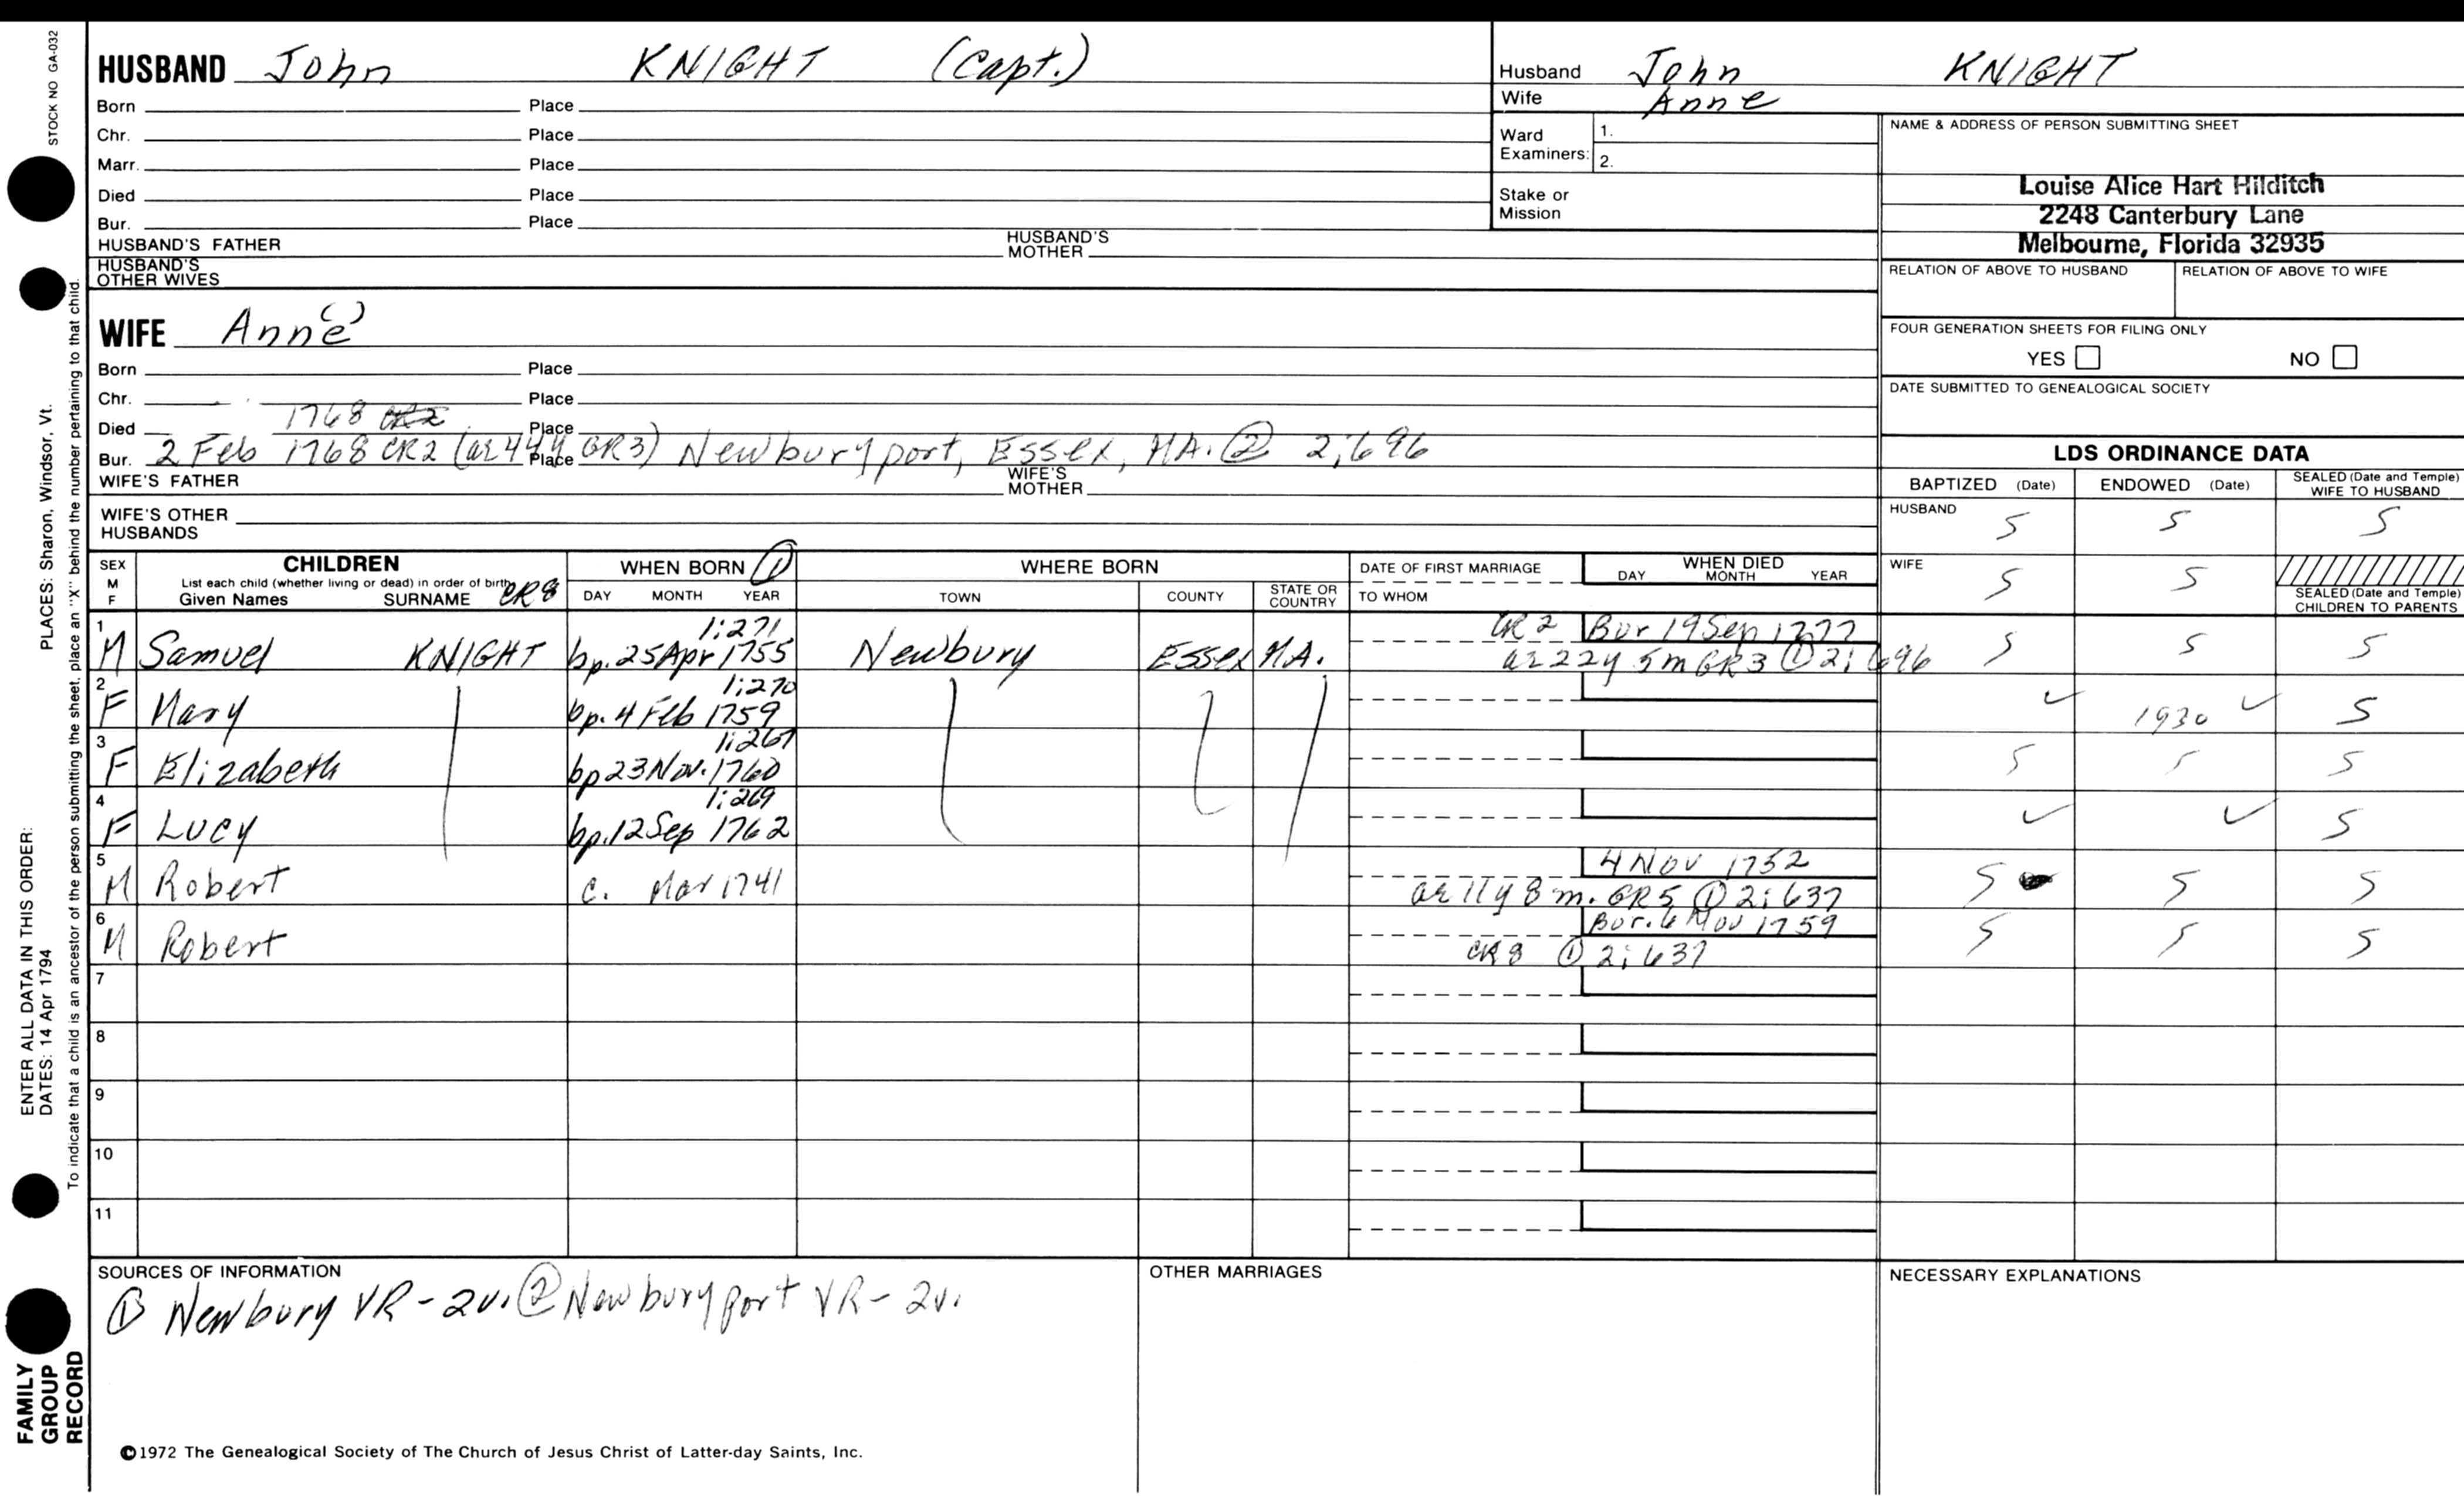 STOCK NO GA-032
HUSBAND John KNIGHT (Capt.)
Born Place
Chr. Place
Marr. Place
Died Place
Bur. Place
HUSBAND'S FATHER HUSBAND'S MOTHER
HUSBAND'S OTHER WIVES
Husband John KNIGHT
Wife Anne
Ward Examiners: 1.
2.
Stake or Mission
NAME & ADDRESS OF PERSON SUBMITTING SHEET
Louise Alice Hart Hilditch
2248 Canterbury Lane
Melbourne, Florida 32935
RELATION OF ABOVE TO HUSBAND RELATION OF ABOVE TO WIFE
FOUR GENERATION SHEETS FOR FILING ONLY
YES NO
DATE SUBMITTED TO GENEALOGICAL SOCIETY
WIFE Anne ( )
Born Place
Chr. Place
Died 1768 Place
Bur. 2 Feb 1768 CR2 (ae 44y GR3) Place Newburyport, Essex, MA. ② 2;696
WIFE'S FATHER WIFE'S MOTHER
WIFE'S OTHER HUSBANDS
LDS ORDINANCE DATA
BAPTIZED (Date) ENDOWED (Date) SEALED (Date and Temple) WIFE TO HUSBAND
HUSBAND S S S
WIFE S S
SEALED (Date and Temple) CHILDREN TO PARENTS
SEX M F
CHILDREN
List each child (whether living or dead) in order of birth
Given Names SURNAME CR8
WHEN BORN ①
DAY MONTH YEAR
WHERE BORN
TOWN COUNTY STATE OR COUNTRY
DATE OF FIRST MARRIAGE
TO WHOM
WHEN DIED
DAY MONTH YEAR
1 1:271 CR2 Bur 19 Sep 1777
M Samuel KNIGHT bp. 25 Apr 1755 Newbury Essex MA. ae 22y 5m GR3 ① 2; 696 S S S
2 1:270
F Mary bp. 4 Feb 1759 ✓ 1930 ✓ S
3 1:267
F Elizabeth bp 23 Nov. 1760 S S S
4 1:269
F Lucy bp. 12 Sep 1762 ✓ ✓ S
5 4 Nov 1752
M Robert c. Mar 1741 ae 11y 8 m. GR5 ① 2; 637 S S S
6 Bur. 6 Nov 1759
M Robert CR8 ① 2; 637 S S S
7
8
9
10
11
SOURCES OF INFORMATION
① Newbury VR - 2v. ② Newburyport VR - 2v.
OTHER MARRIAGES
NECESSARY EXPLANATIONS
©1972 The Genealogical Society of The Church of Jesus Christ of Latter-day Saints, Inc.
ENTER ALL DATA IN THIS ORDER:
DATES: 14 Apr 1794
PLACES: Sharon, Windsor, Vt.
To indicate that a child is an ancestor of the person submitting the sheet, place an "X" behind the number pertaining to that child.
FAMILY
GROUP
RECORD